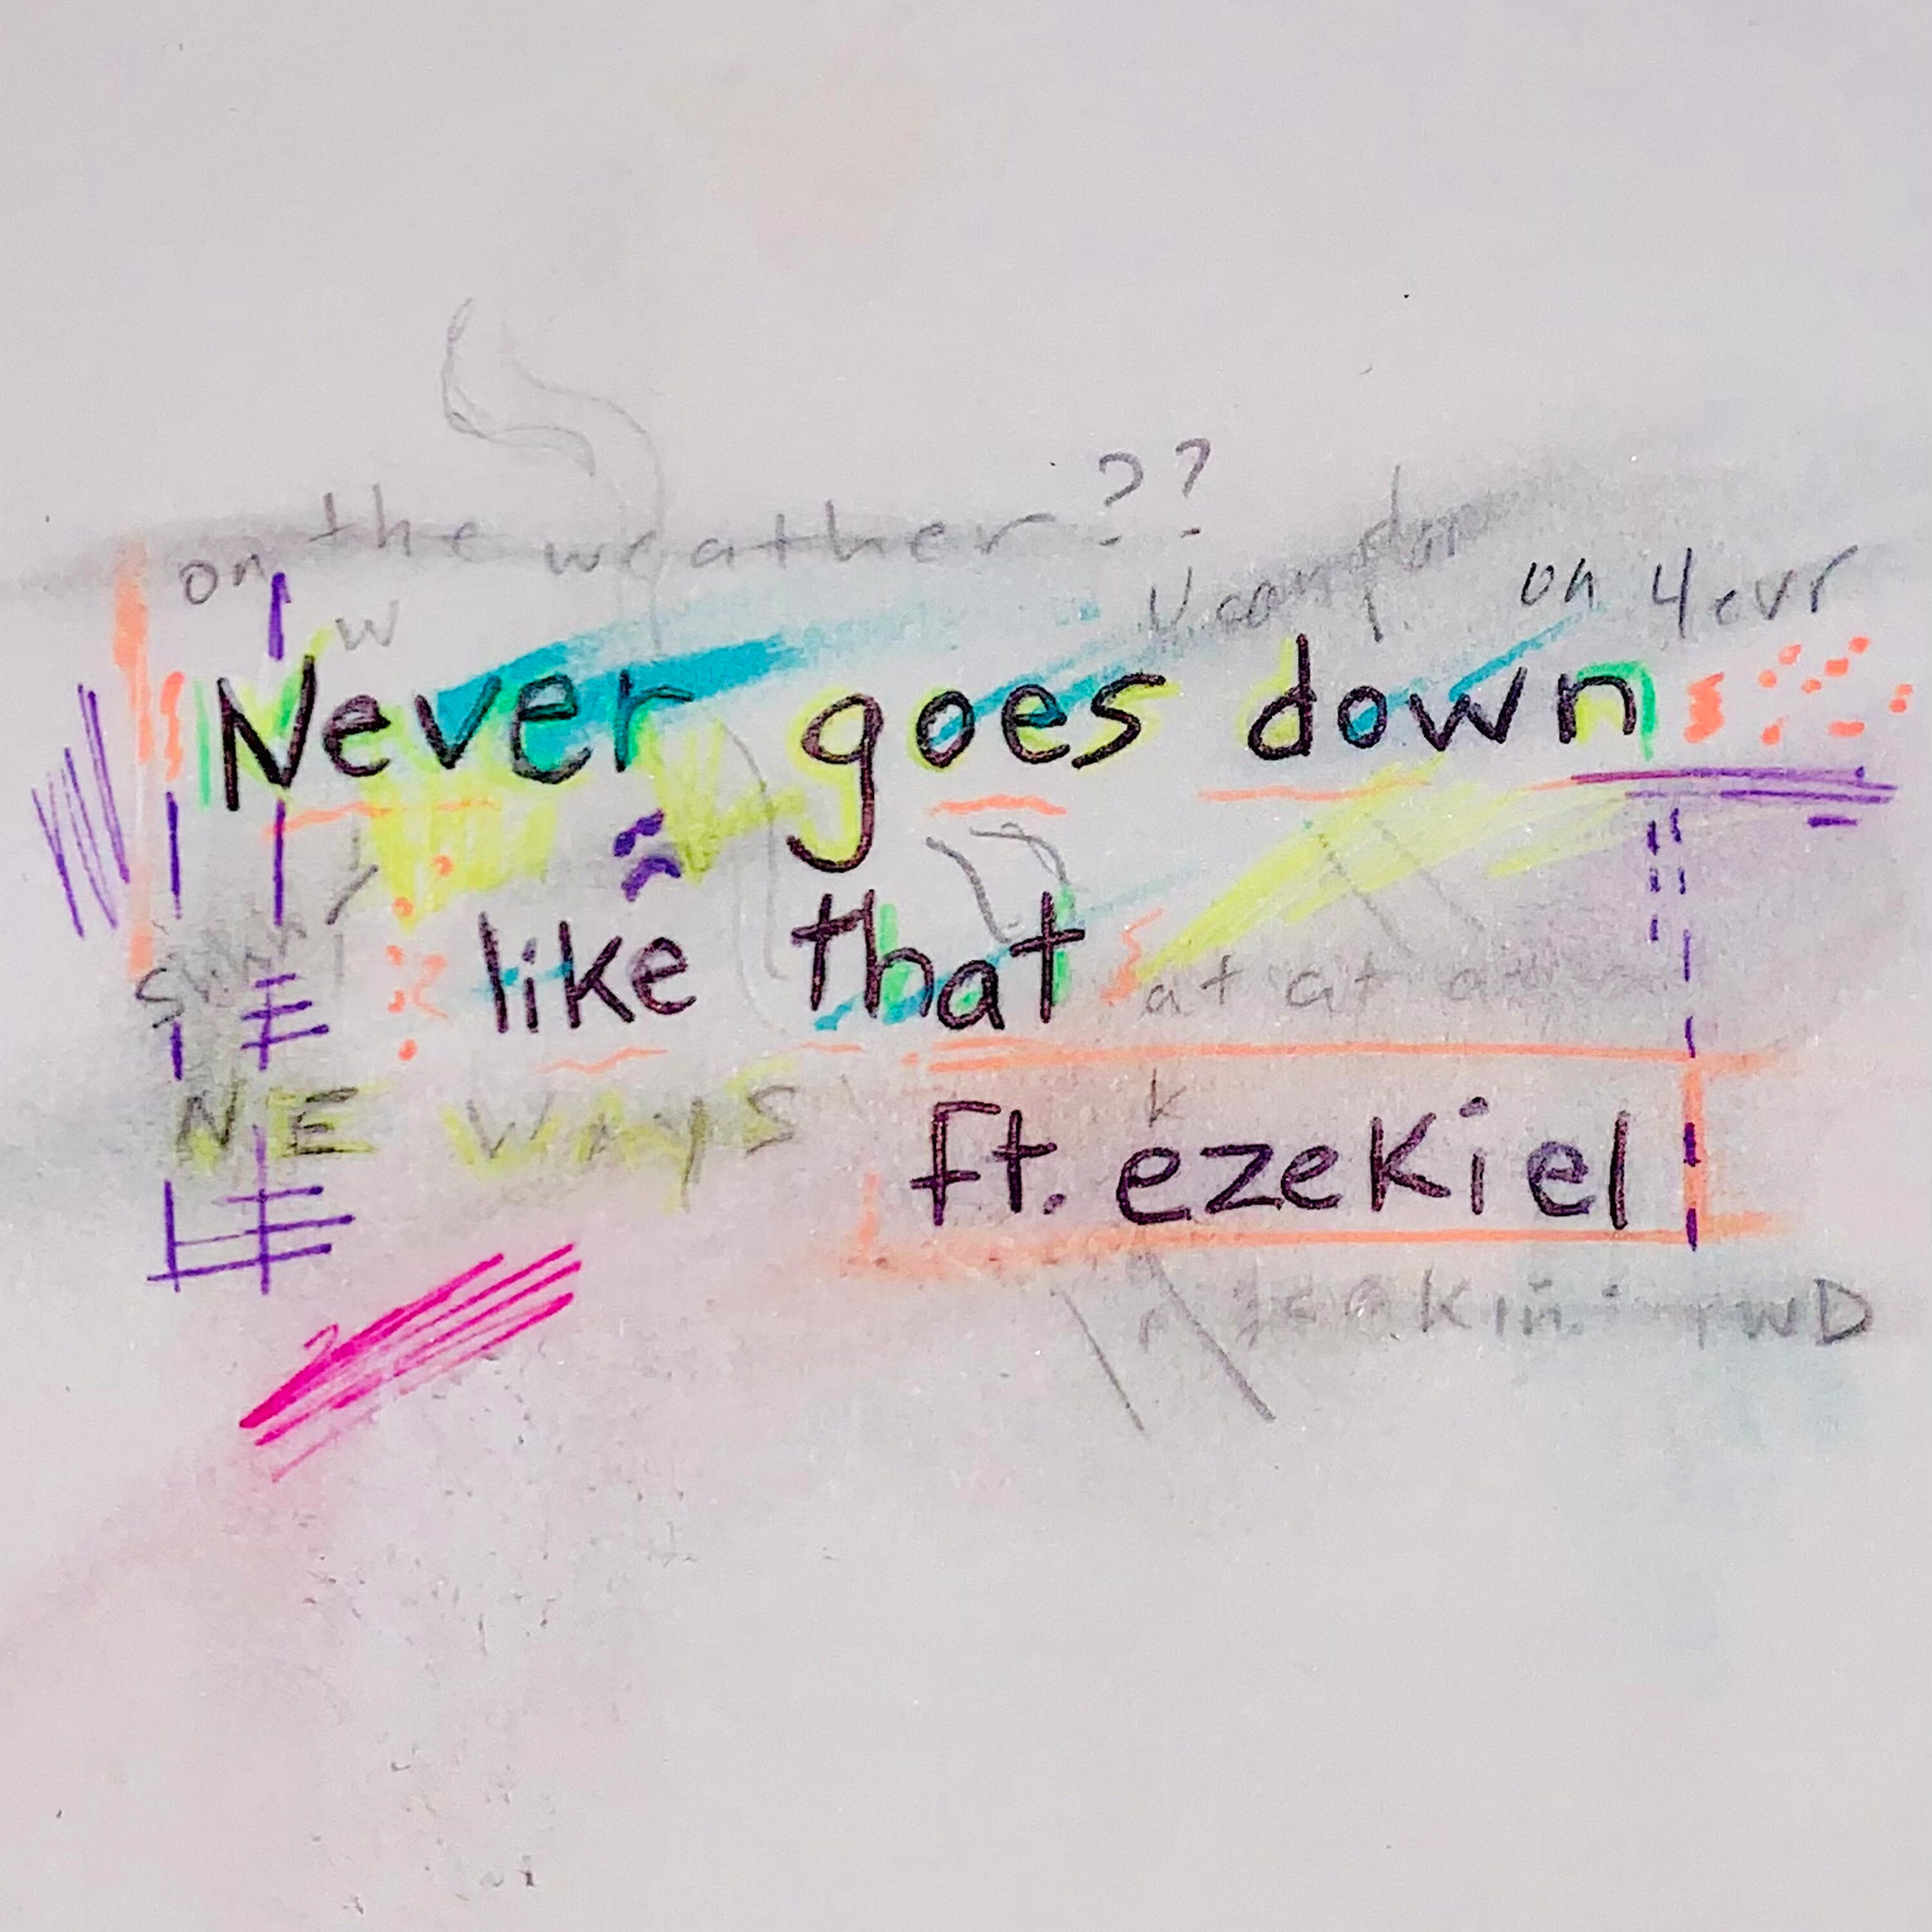 on the weather??
on 4evr
W
Never goes down
like that
at at at
NE WAYS
k
ft. ezekiel